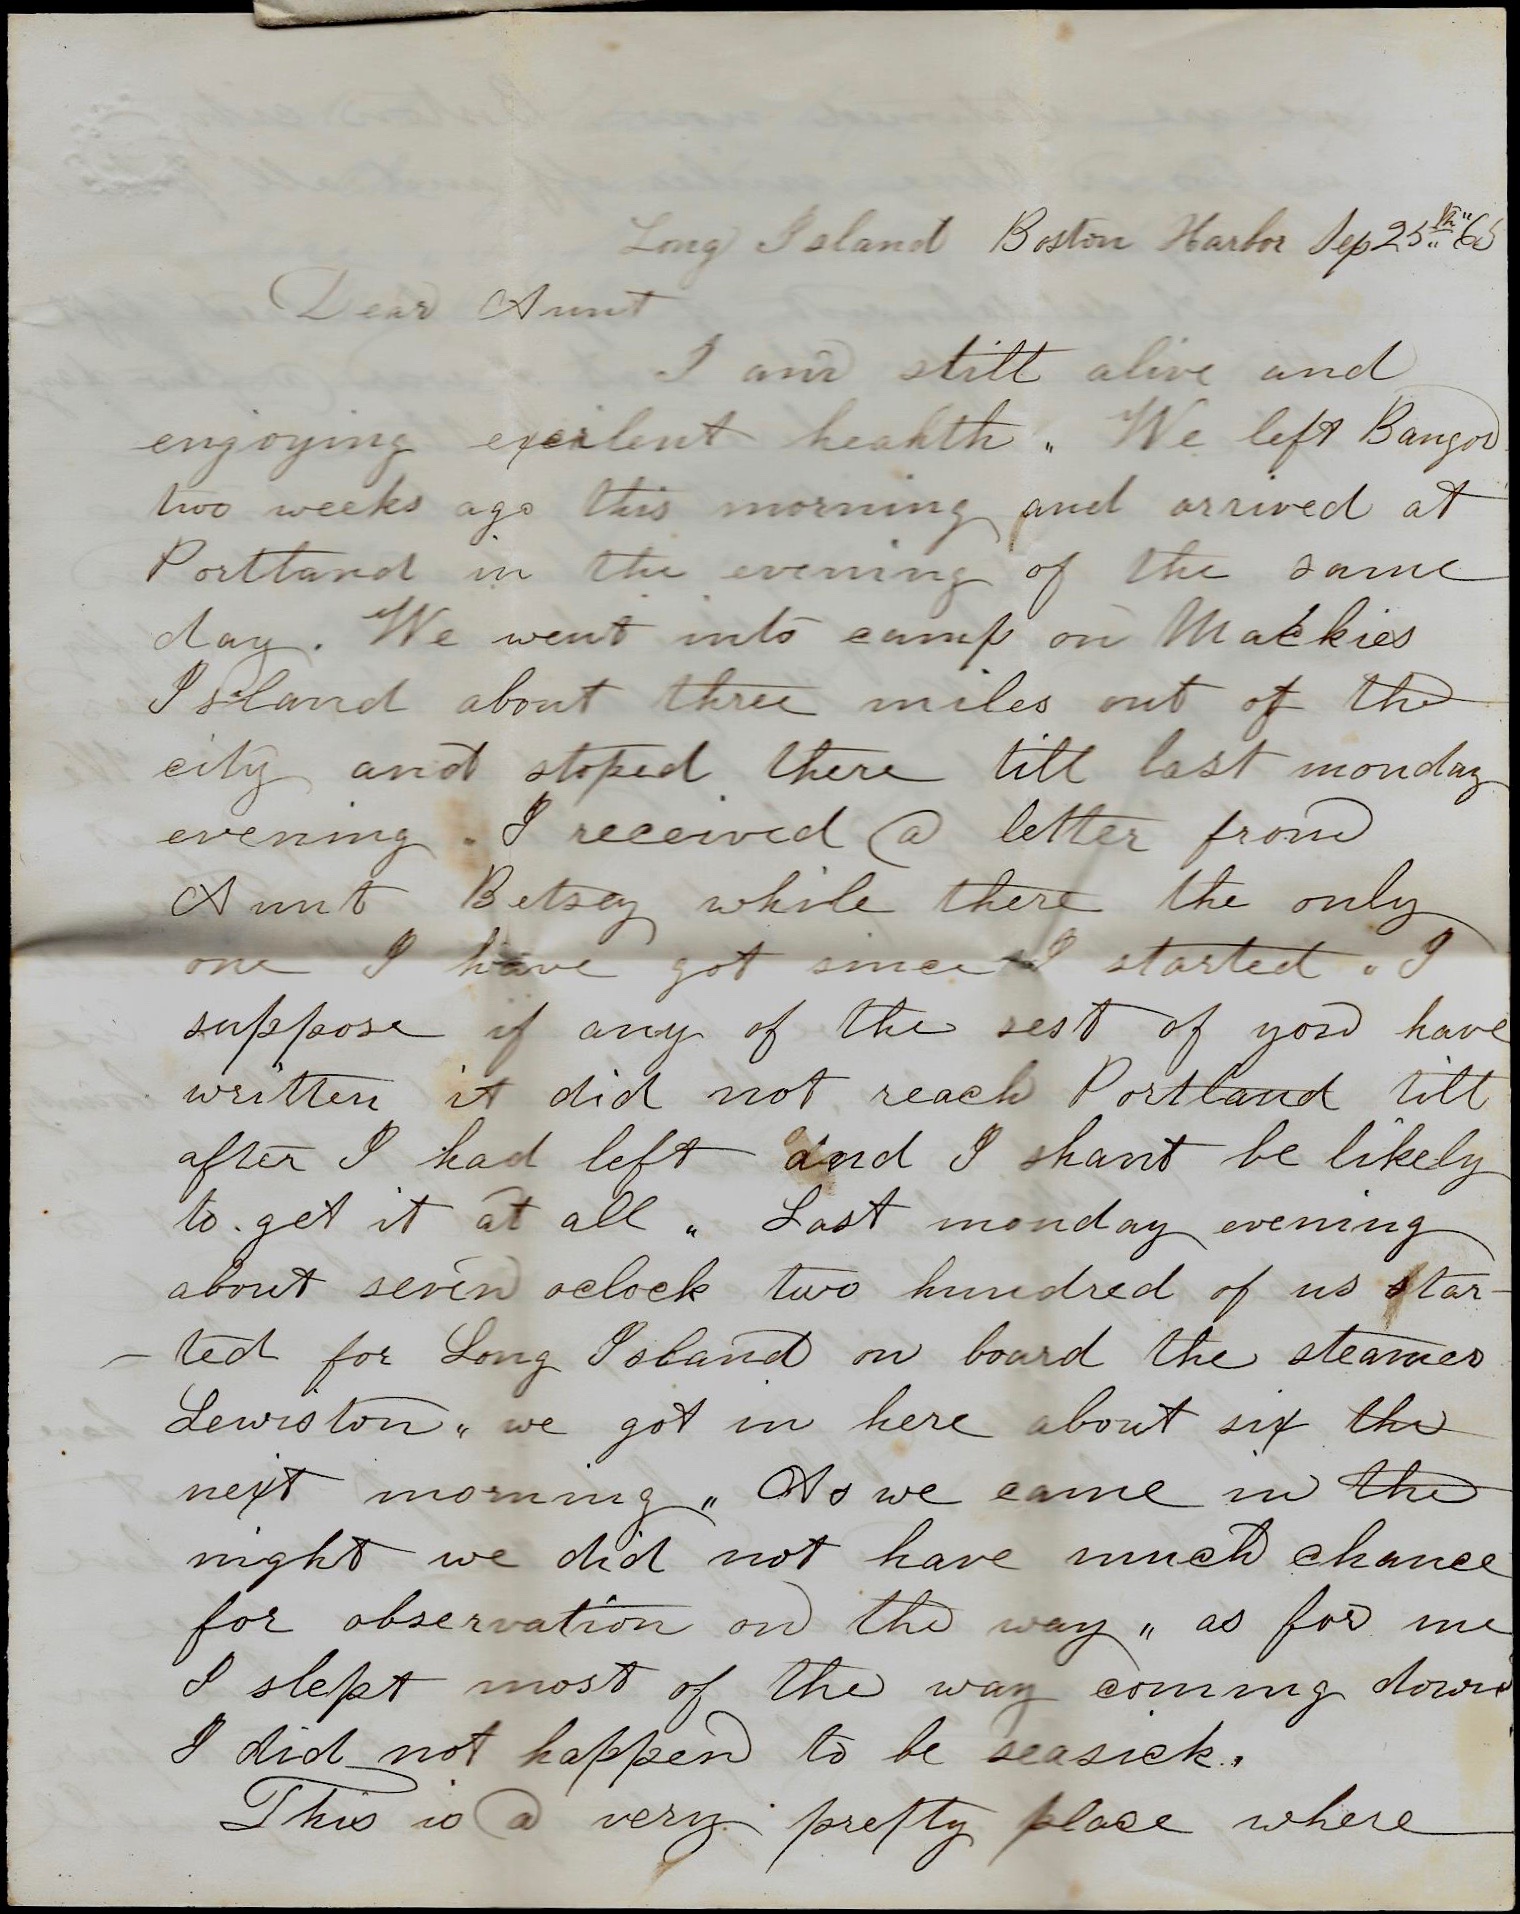 Long Island Boston Harbor Sep 25th "65
Dear Aunt
I am still alive and
engoying excilent heahth „ We left Bangor
two weeks ago this morning and arrived at
Portland in the evening of the same
day. We went into camp on Mackies
Island about three miles out of the
city and stoped there till last monday
evening. I received a letter from
Aunt Betsey while there the only
one I have got since I started. I
suppose if any of the rest of you have
written it did not reach Portland till
after I had left and I shant be likely
to get it at all „ Last monday evening
about seven oclock two hundred of us star-
-ted for Long Island on board the steamer
Lewiston „ we got in here about six the
next morning „ As we came in the
night we did not have much chance
for observation on the way „ as for me
I slept most of the way coming down
I did not happen to be seasick.
This is a very pretty place where